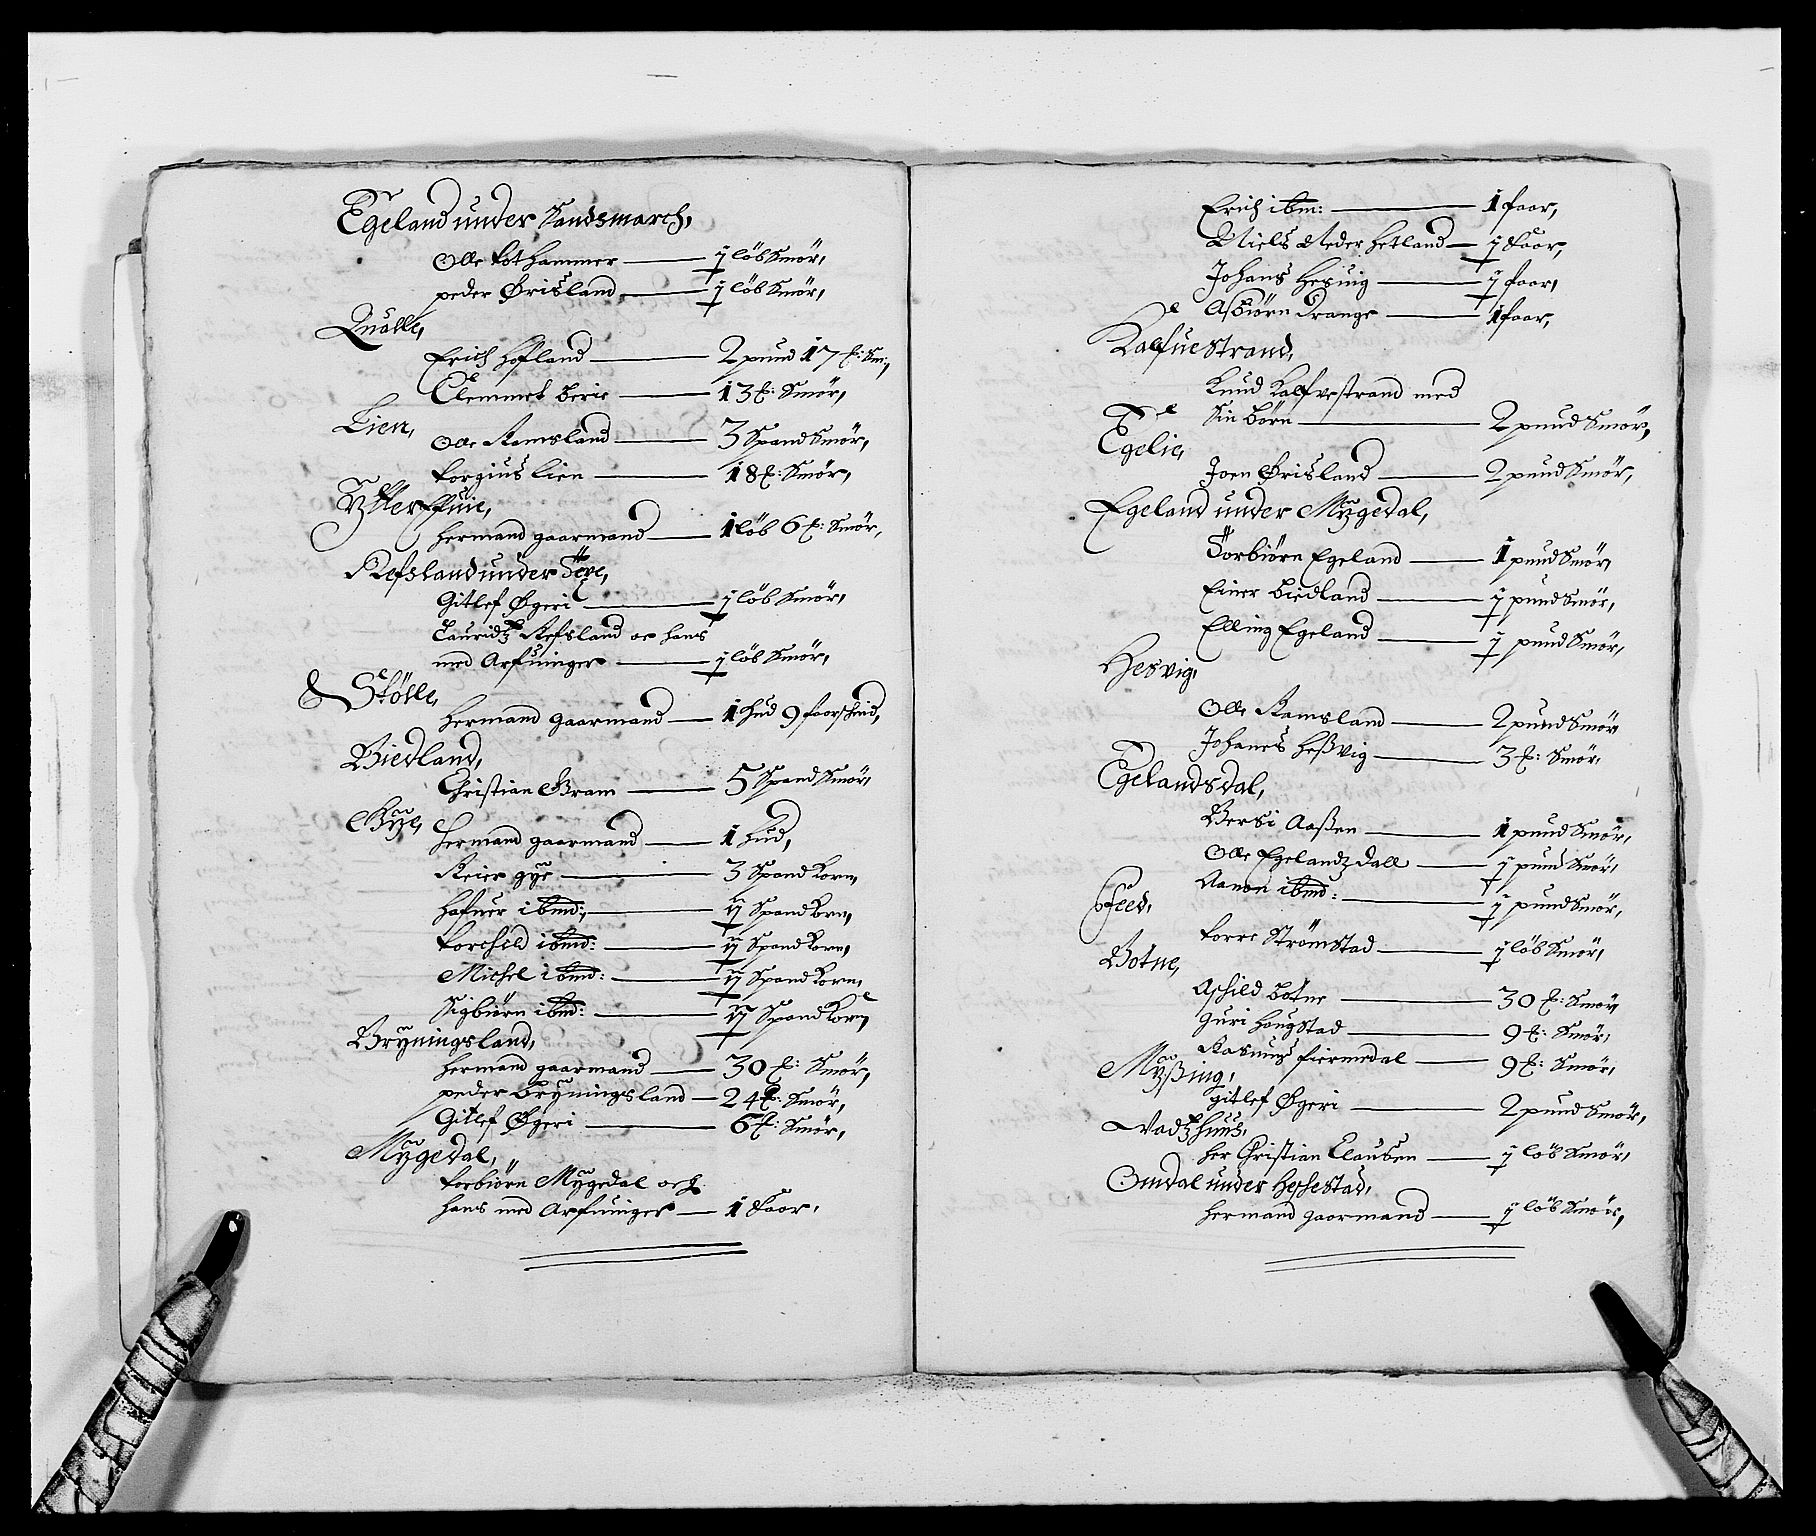 Egeland under Sandsmarch,
Olle Rothammer — ½ løb Smör,
peder Ørisland — ½ löb Smör,
Quälle,
Erich Hofland — 2 pund 17 ℔: Sm:
Clemmet Berie — 13 ℔: Smör,
Lien,
Olle Ramsland — 3 Spand Smör,
Torgius lien — 18 ℔: Smör,
Ytter
hermand gaarmand — 1 löb 6 ℔: Smör,
Refsland under
Gitlef Øgeri — ½ löb Smör,
Lauridtz Refsland oc hans
med Arfuinger — ½ löb Smör,
Stölle,
hermand gaarmand — 1 Hud 9 faarschind,
Biedland,
Christian Gram — 5 Spand Smör,
Gÿe,
hermand gaarmand — 1 Hud,
Reier gÿe — 3 Spand Korn,
hafuer ibmd: — 1½ Spand Korn,
Torchild ibmd: — 1½ Spand Korn,
Michel ibmd: — 1½ Spand Korn,
Sigbiörn ibmd: — 1½ Spand Korn
Brÿningsland,
hermand gaarmand — 30 ℔: Smör,
peder Brÿningsland — 24 ℔: Smör,
Gitlef Øgeri — 6 ℔: Smör,
Mÿgedal,
Torbiörn Mÿgedal och
hans med Arfuinger — 1 Faar,
Erich ibm: — 1 faar,
Niels Neder Hetland — ½ Faar,
Johans Hesuig — ½ faar,
Asbiörn Drange — 1 faar,
Kalfuestrand,
Knud Kalfvestrand med
Sin Börn — 2 pund Smör,
Egelie,
Joen Ørisland — 2 pund Smör,
Egeland under Mÿgedal,
Torbiörn Egeland — 1 pund Smör
Einer Biedland — ½ pund Smör,
Elling Egeland — ½ pund Smör,
Hesvig,
Olle Ramsland — 2 pund Smör
Johanes Heßvig — 3 ℔: Smör,
Egelandsdal,
Bersi Aaßen — 1 pund Smör,
Olle Egelandtzdall — ½ pund Smör,
Aanon ibmd: — ½ pund Smör,
Feed,
Torre Strömstad — ½ löb Smör,
Botne,
Aschild Botne — 30 ℔: Smör
Guri Haugstad — 9 ℔: Smör,
Rasmus fieremedal — 9 ℔: Smör,
Mÿßing,
gitlef Øgeri — 2 pund Smör,
Vadtzhuus,
her Christian Clausen — ½ löb Smör,
Omdal under Heschestad,
hermand gaarmand — ½ löb Smör,